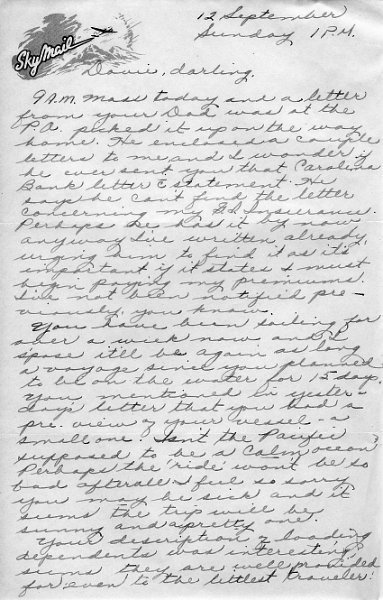 Sky Mail
12 September
Sunday 1 P.M.
Davie, darling,
9 A.M. Mass today and a letter
from your Dad was at the
P.O. picked it up on the way
home. He enclosed a couple
letters to me and I wonder if
he ever sent you that Carolina
Bank letter & statement. He
says he can't find the letter
concerning my Insurance.
Perhaps he has it by now
anyway I've written, already,
urging him to find it as it's
important if it states I must
begin paying my premiums.
I've not been notified pre-
viously, you know.
You have been sailing for
over a week now and I
spose it'll be again as long
a voyage since you planned
to be on the water for 15 days.
You mentioned in yester-
day's letter that you had a
pre. view of your vessel - a
small one. Isn't the Pacific
supposed to be a calm ocean
Perhaps the 'ride' won't be so
bad afterall. I feel so sorry
you may be sick and it
seems the trip will be
sunny and a pretty one.
Your description of loading
dependents was interesting,
seems they are well provided
for even to the littlest traveler!